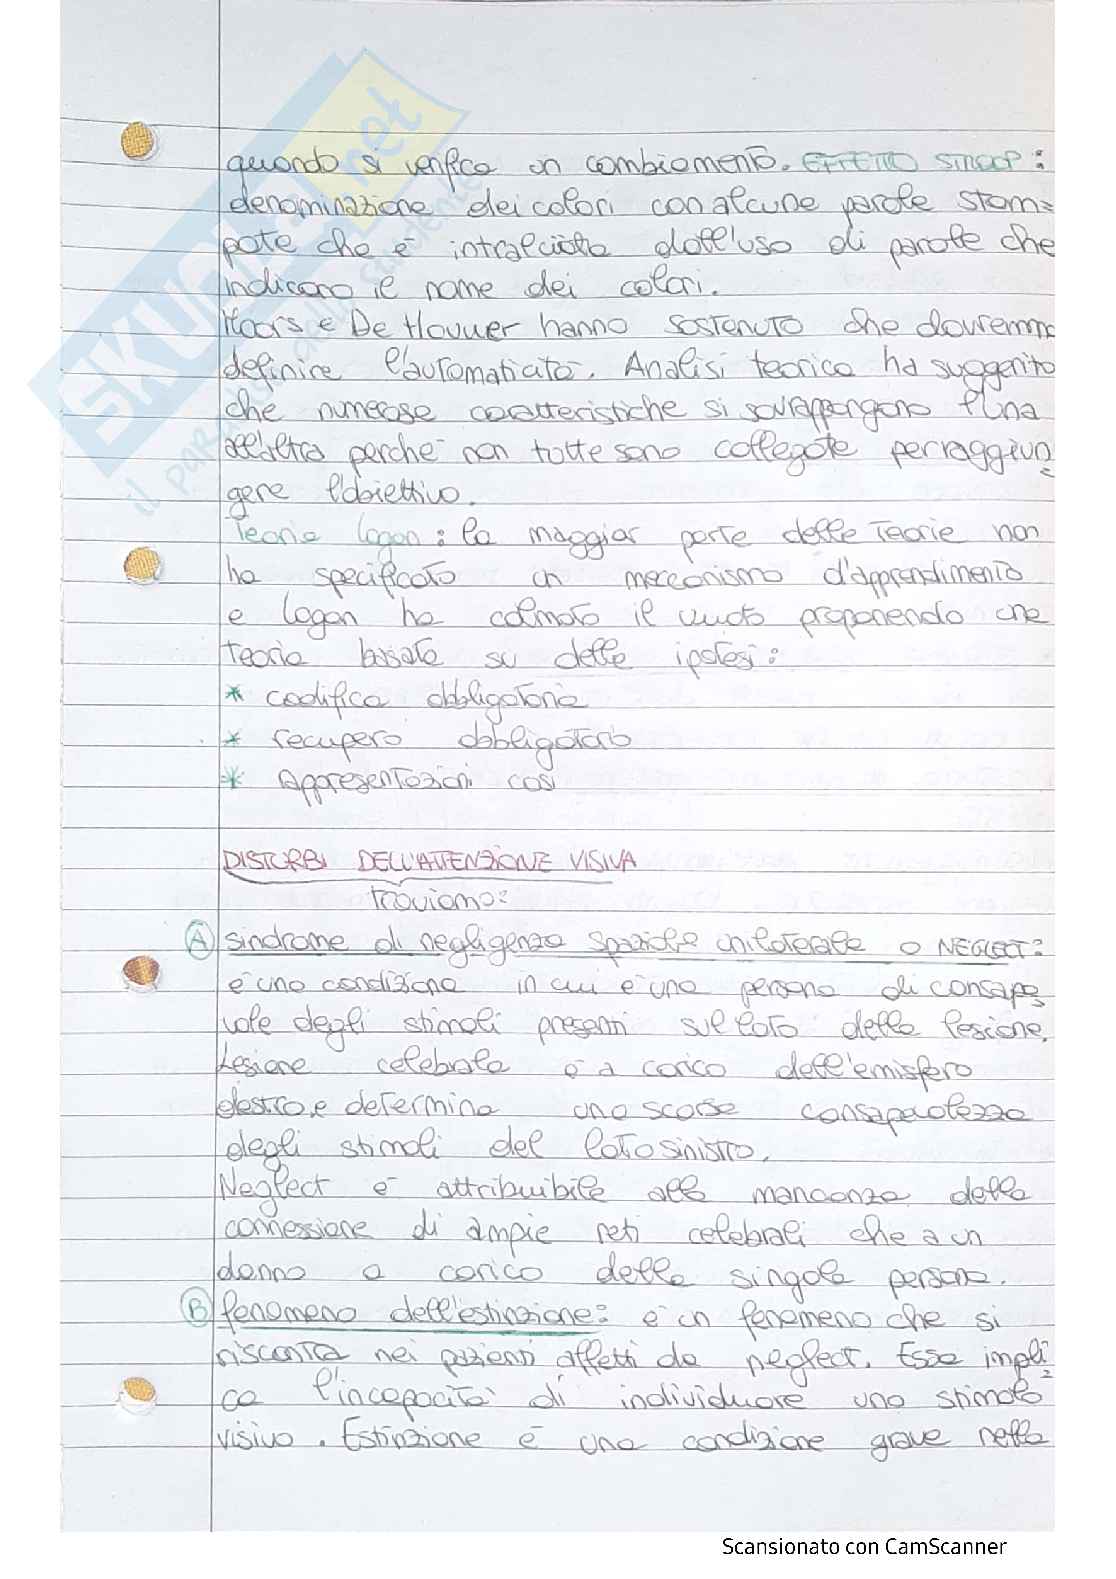 quando si verifica un cambiamento. EFFETTO STROOP:
denominazione dei colori con alcune parole stam=
pate che è intralciata dall'uso di parole che
indicano il nome dei colori.
Moors e De Houwer hanno sostenuto che dovremmo
definire l'automaticità. Analisi teorica ha suggerito
che numerose caratteristiche si sovrappongono l'una
all'altra perché non tutte sono collegate per raggiun=
gere l'obiettivo.
Teoria logan: la maggior parte delle teorie non
ha specificato un meccanismo d'apprendimento
e logan ha colmato il vuoto proponendo una
teoria basata su delle ipotesi:
* codifica obbligatoria
* recupero obbligatorio
* Appresentazioni casi
DISTURBI DELL'ATTENZIONE VISIVA
troviamo:
A sindrome di negligenza spaziale unilaterale o NEGLECT:
è una condizione in cui è una persona di consape=
vole degli stimoli presenti sul lato della lesione.
Lesione celebrale è a carico dell'emisfero
destro, e determina una scarsa consapevolezza
degli stimoli del lato sinistro.
Neglect è attribuibile alla mancanza della
connessione di ampie reti celebrali che a un
danno a carico della singola persona.
B fenomeno dell'estinzione: è un fenomeno che si
riscontra nei pazienti affetti da neglect. Essa impli=
ca l'incapacità di individuare uno stimolo
visivo. Estinzione è una condizione grave nella
SKUOLA.net
il paradiso dello studente
Scansionato con CamScanner